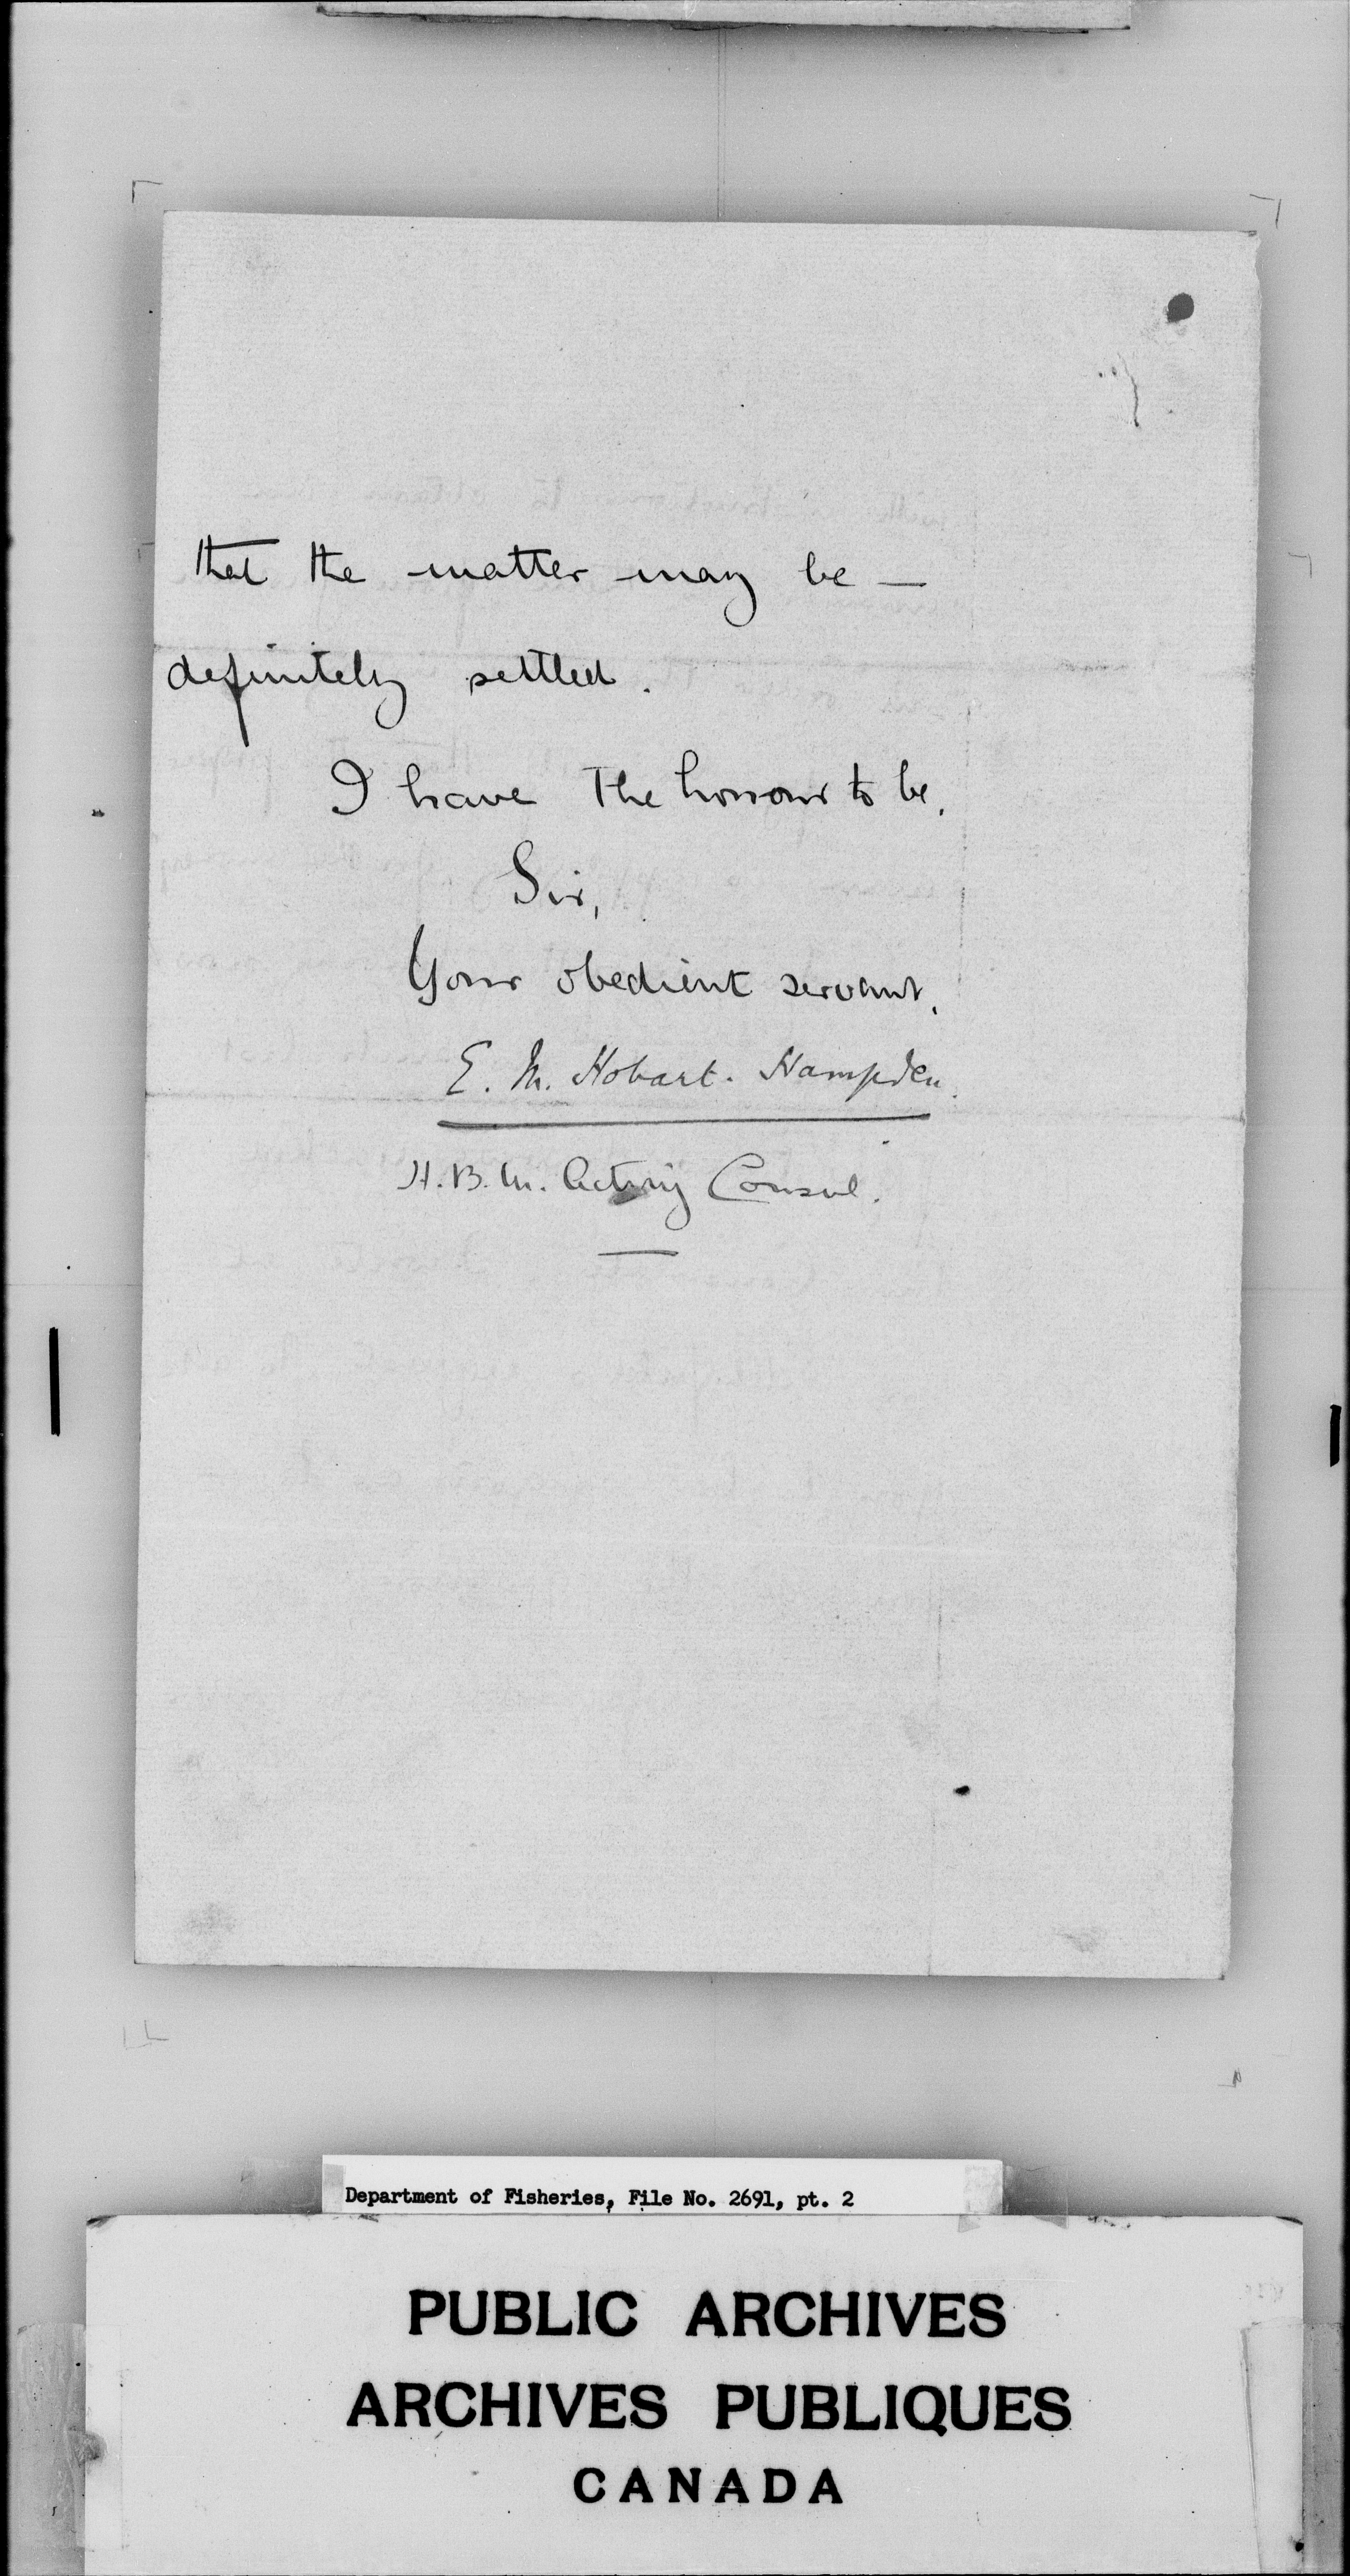 that the matter may be —
definitely settled.
I have the honour to be,
Sir,
Your obedient servant,
E. M. Hobart-Hampden.
H.B.M. Acting Consul.
Department of Fisheries, File No. 2691, pt. 2
PUBLIC ARCHIVES
ARCHIVES PUBLIQUES
CANADA